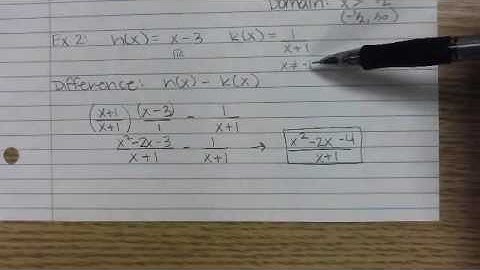 Domain: x > -½
(-½, ∞)
Ex. 2: h(x) = x-3 k(x) = 1/(x+1)
ℝ x ≠ -1
Difference: h(x) - k(x)
((x+1)/(x+1)) (x-3)/1 - 1/(x+1)
(x²-2x-3)/(x+1) - 1/(x+1) → (x²-2x-4)/(x+1)